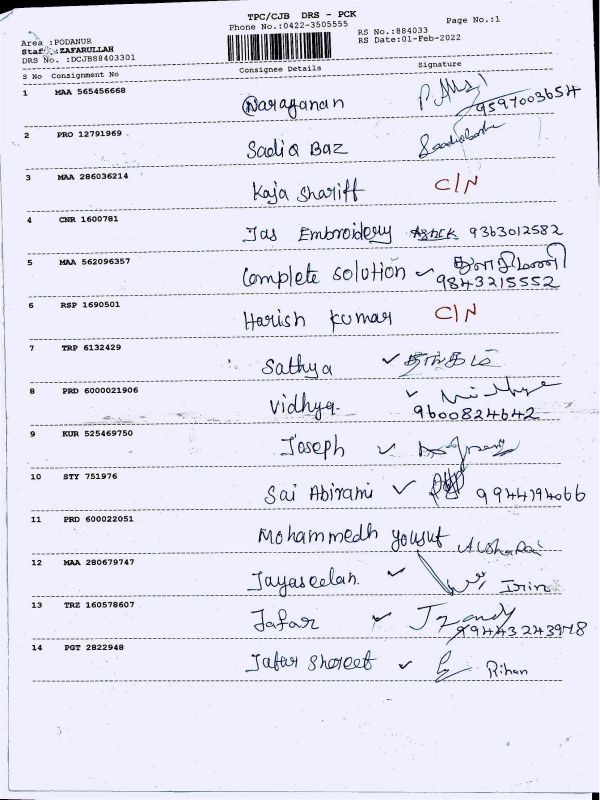 TPC/CJB DRS - PCK
Phone No.:0422-3505555
Page No.:1
Area :PODANUR
Staff :ZAFARULLAH
DRS No. :DCJB88403301
RS No.:884033
RS Date:01-Feb-2022
S No Consignment No Consignee Details Signature
1 MAA 565456668 Narayanan 9597003654
2 PRO 12791969 Sadiq Baz
3 MAA 286036214 Kaja Shariff C/N
4 CNR 1600781 Jas Embroidery 9363012582
5 MAA 562096357 Complete solution ✓ துளசிமணி
9843215552
6 RSP 1690501 Harish Kumar C/N
7 TRP 6132429 Sathya ✓ தங்கம்
8 PRD 6000021906 Vidhya ✓
9600824642
9 KUR 525469750 Joseph ✓
10 STY 751976 Sai Abirami ✓ 9944194066
11 PRD 600022051 Mohammedh Yousuf
12 MAA 280679747 Jayaseelan ✓ Irin
13 TRZ 160578607 Jafar ✓
99443243978
14 PGT 2822948 Jafar Shareef ✓ Rihan